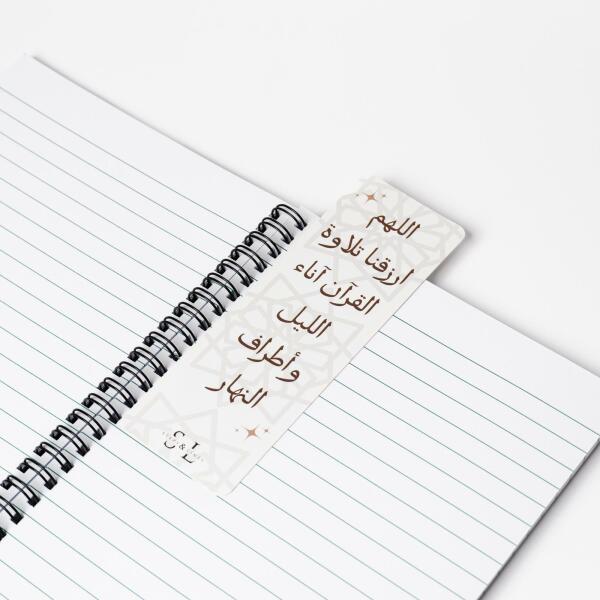 اللهم
ارزقنا تلاوة
القرآن آناء
الليل
وأطراف
النهار
S & L